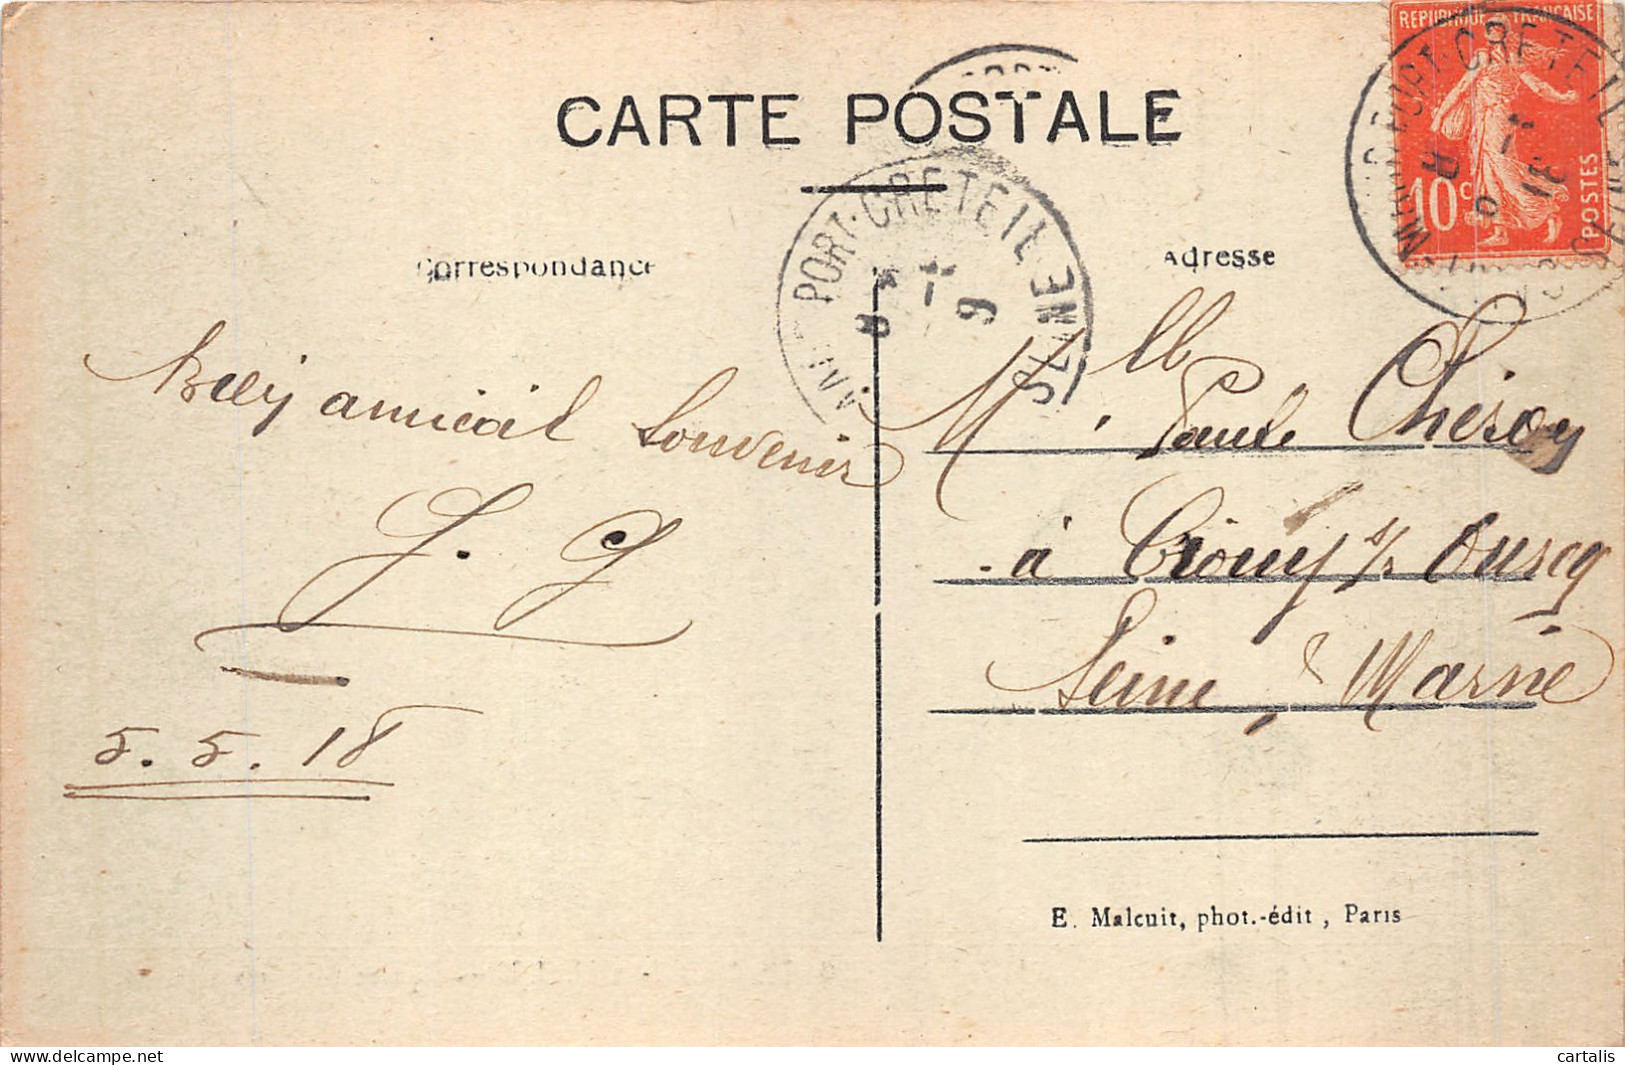 CARTE POSTALE
REPUBLIQUE FRANÇAISE
10c
POSTES
PORT-CRETEIL
SEINE
PORT-CRETEIL
Correspondance
Adresse
amical Souvenir
J. G
5. 5. 18
Mlle Paule
à Crouy s/ Ourcq
Seine & Marne
E. Malcuit, phot.-édit, Paris
cartalis